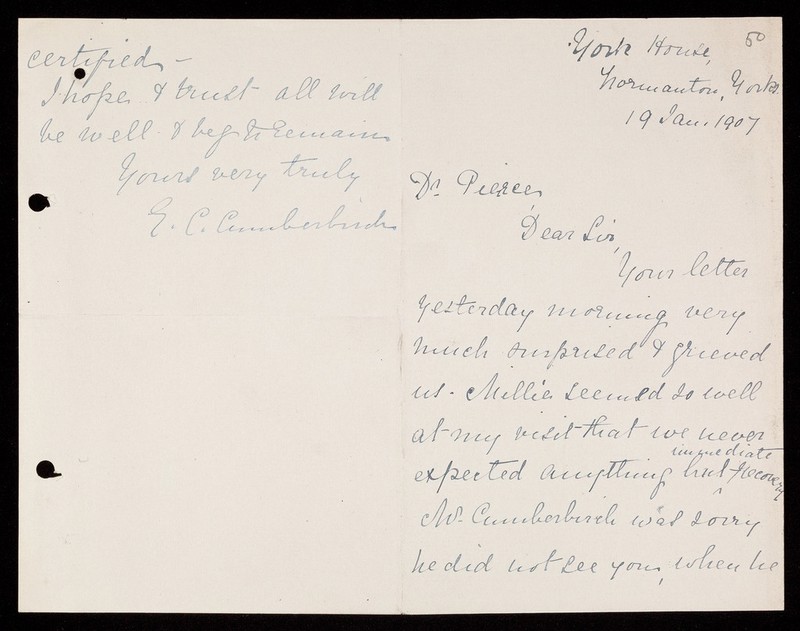 50
York House,
Normanton, Yorks.
19 Jan. 1907
Dr. Pierce,
Dear Sir,
Your letter
yesterday morning very
much surprised & grieved
us. Millie seemed so well
at my visit that we never
immediate
expected anything but recovery
Mr. Cumberbirch was sorry
he did not see you, when he
certified -
I hope & trust all will
be well & beg to remain
Yours very truly
E. C. Cumberbirch